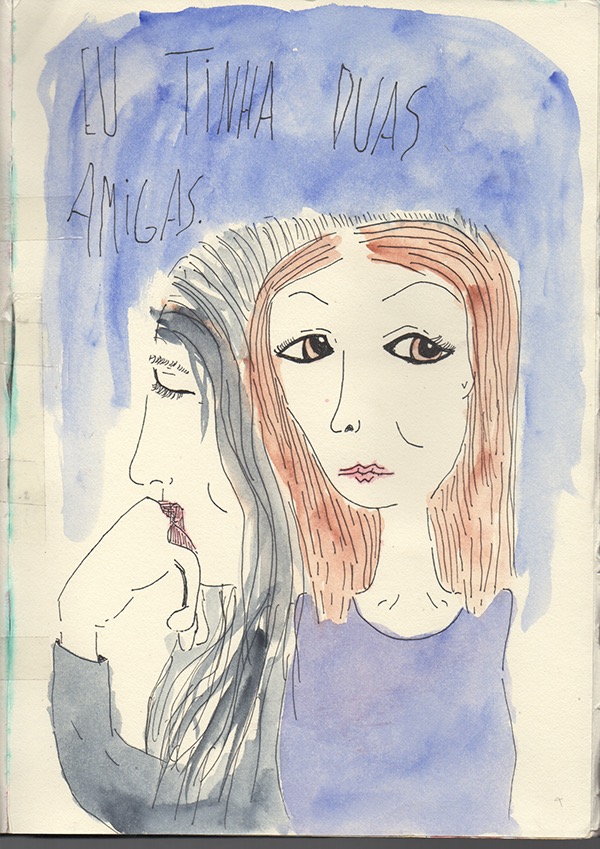 EU TINHA DUAS
AMIGAS.